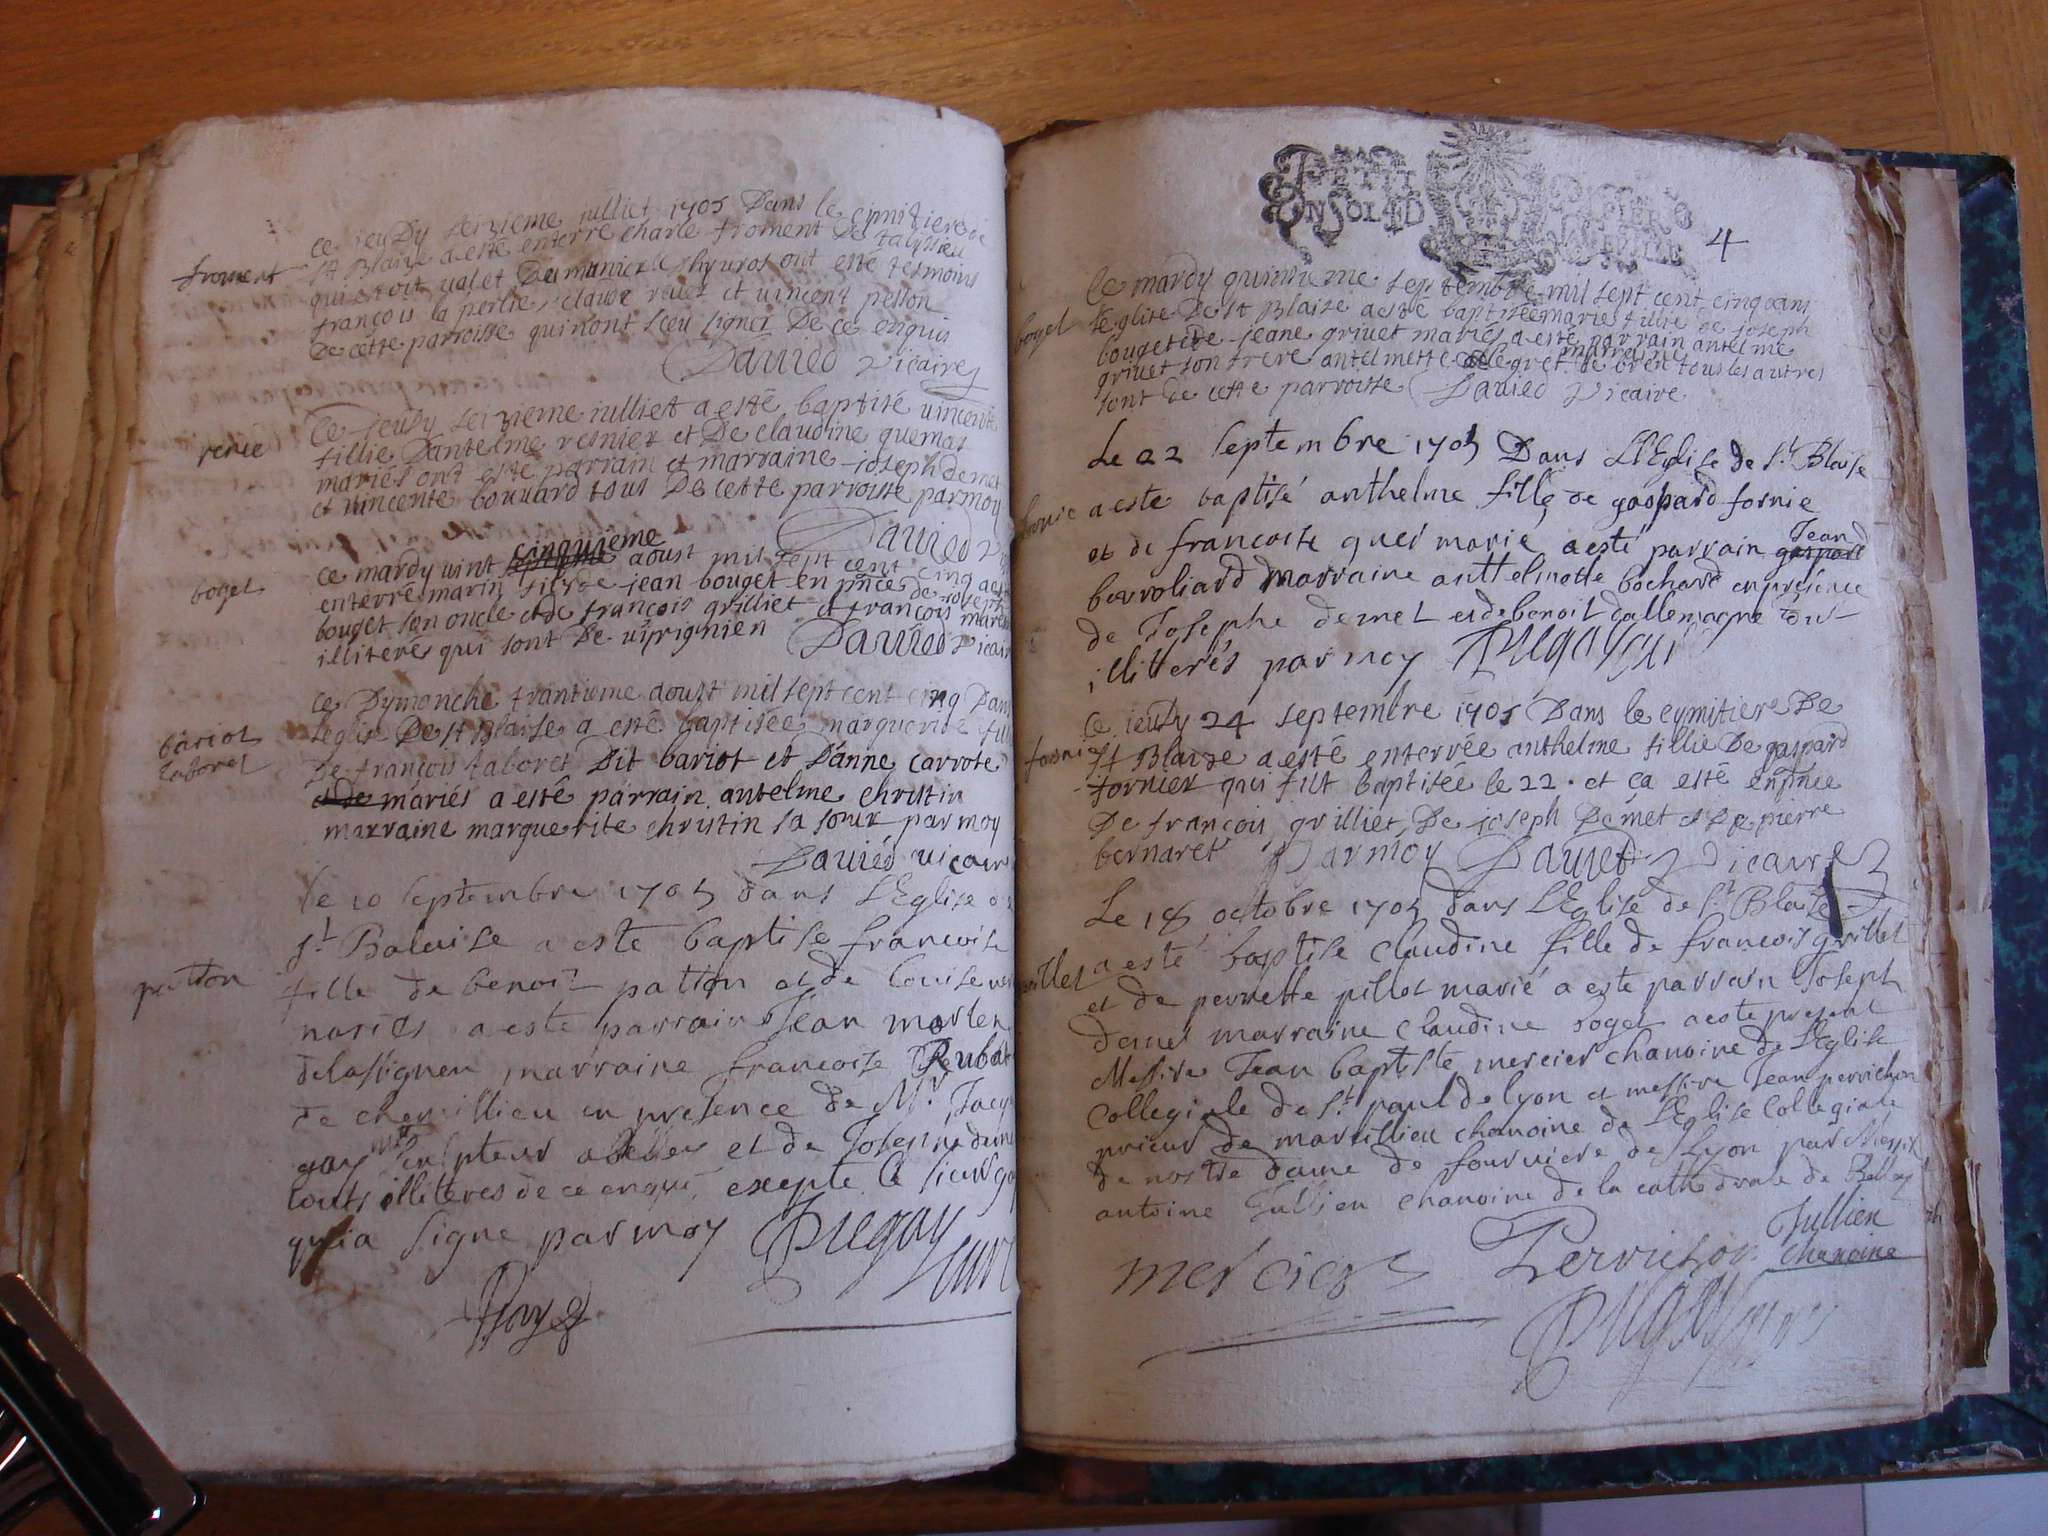 froment
ce jeudy seizieme julliet 1705 Dans le cimitiere de
St Blaise a esté enterré charle froment De talissieu
qui estoit valet Du munier hyuros ont esté tesmoins
françois la perlie, claude vuet et vincent pesson
De cette parroisse qui nont sceu signer De ce enquis
Dauied Vicaire
renie
Ce jeudy seizieme julliet a esté baptisé vincente
fillie Dantelme resnier et De claudine quemas
mariés ont esté parrain et marraine joseph demet
et vincente bouuard tous De cette parroisse par moy
Dauied
boget
ce mardy vint cinquieme aoust mil sept cent cinq a esté
enterré marin jean bouget en pnce de joseph
bouget son oncle et de françois grilliet et françois
illiterés qui sont De viprignien Dauied vicair
bariot
taboret
ce Dymanche trantieme aoust mil sept cent cinq Dans
leglise De st Blaise a esté baptisée marguerite fill
De françois taboret Dit bariot et Danne carrote
et de mariés a esté parrain antelme christin
marraine marguerite christin sa sœur par moy
Dauied vicair
patton
le 10 septembre 1705 dans LEglise de
St Balaise a este baptise francoise
fille de benoit patton et de Louise
mariés a este parrain Jean
delassignen marraine francoise Rubat
de chemillieu en presence de Mr Jacq
gay mtre sculpteur a belley et de Josephe deme
touts illiteres de ce enqui excepte le sieur ga
qui a signe par moy Dugay
cure
4
PETIT PAPIER
UN SOL 4 D
boget
Ce mardy quinzieme septembre mil sept cent cinq dans
leglise De st Blaise a esté baptisée marie fillie de joseph
bouget et de jeane griuet mariés a esté parrain antelme
griuet son frere antelmette marraine de oren tous les autres
sont de cette parroisse Dauied Vicaire
fornie
Le 22 septembre 1705 Dans LEglise de St Blaise
a este baptisé anthelme fille de gaspard fornie
et de francoise quei marie a esté parrain Jean gaspard
berroliard marraine anthelmette bochard en présence
de Josephe demet et de benoit dallemagne tous
illitterés par moy Dugay curé
fornie
Ce jeudy 24 septembre 1705 Dans le cymitiere De
St Blaise a esté enterrée anthelme fillie De gaspard
fornier qui fut baptisée le 22. et ça esté en pnce
De françois grilliet, De joseph Demet et De pierre
bernaret Par moy Dauied Vicaire
grillet
Le 18 octobre 1705 dans LEglise de St Blaise
a esté baptise claudine fille de francois grillet
et de pernette pillot marié a este parrain Joseph
demet marraine claudine boget a este present
Messire Jean baptiste mercier chanoine de LEglise
Collegiale de St paul de Lyon et messire Jean perrichon
prieur de marillieu chanoine de LEglise Collegiale
de nostre dame de fourviere de Lyon par Messire
antoine Jullien chanoine de la cathedrale de Belley
mercier Perrichon Jullien
chanoine
Dugay cure